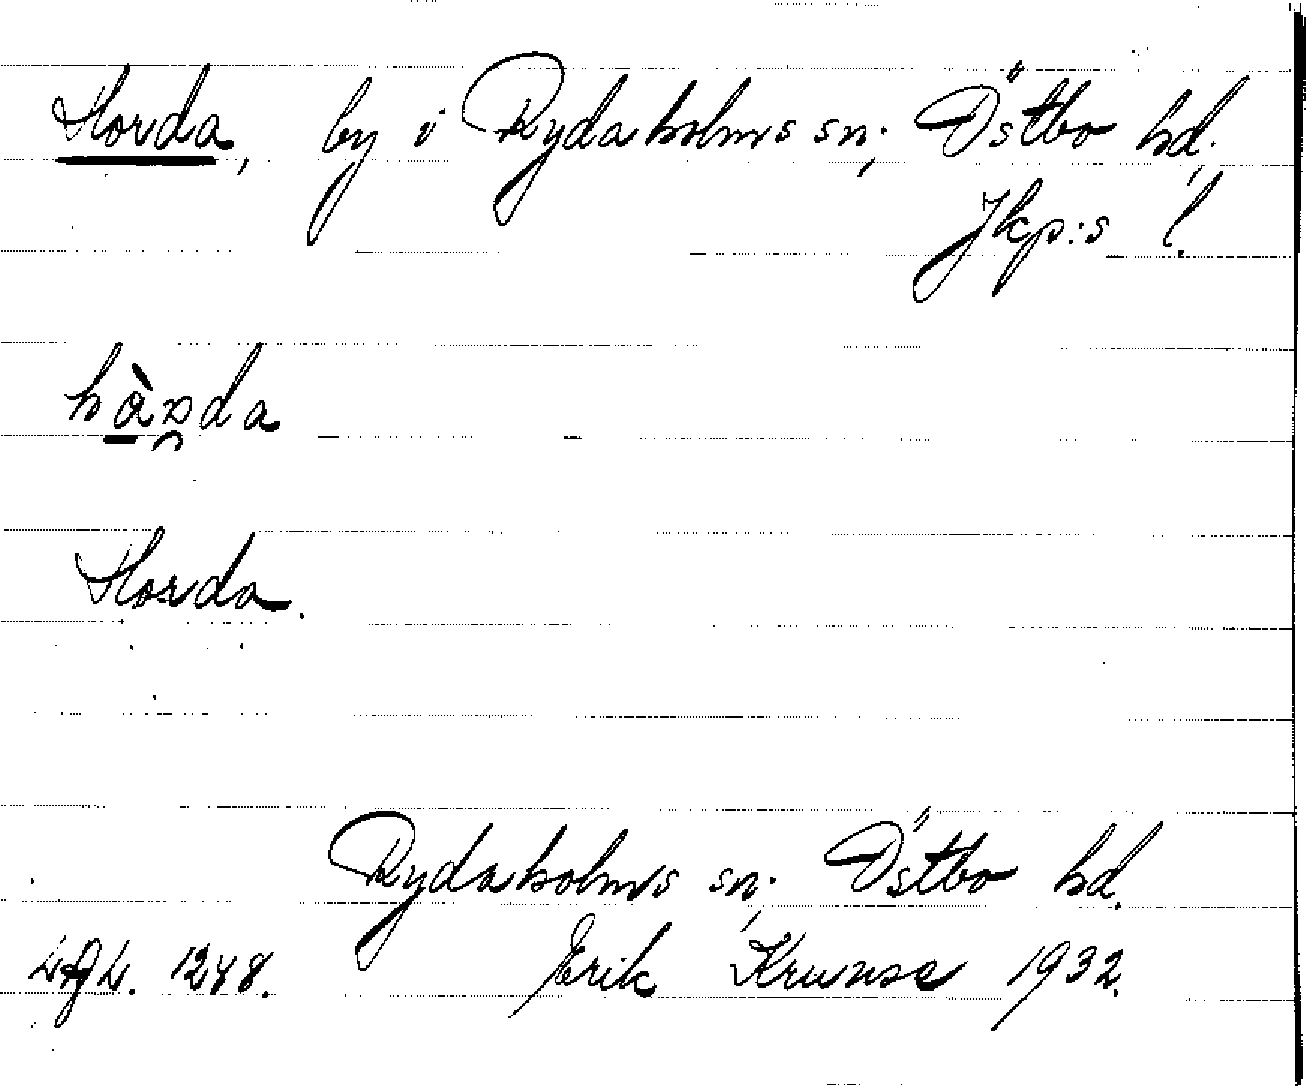 Horda, by i Rydaholms sn, Östbo hd,
Jkp:s l.
hàꞦda
Horda.
Rydaholms sn, Östbo hd.
1248. Erik Krunse 1932.